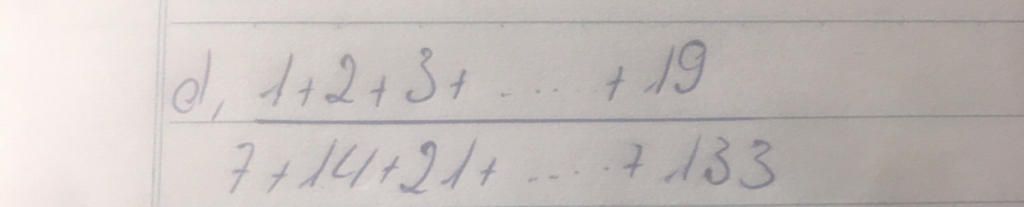 d, 1+2+3+ ..... +19
7+14+21+ ..... + 133